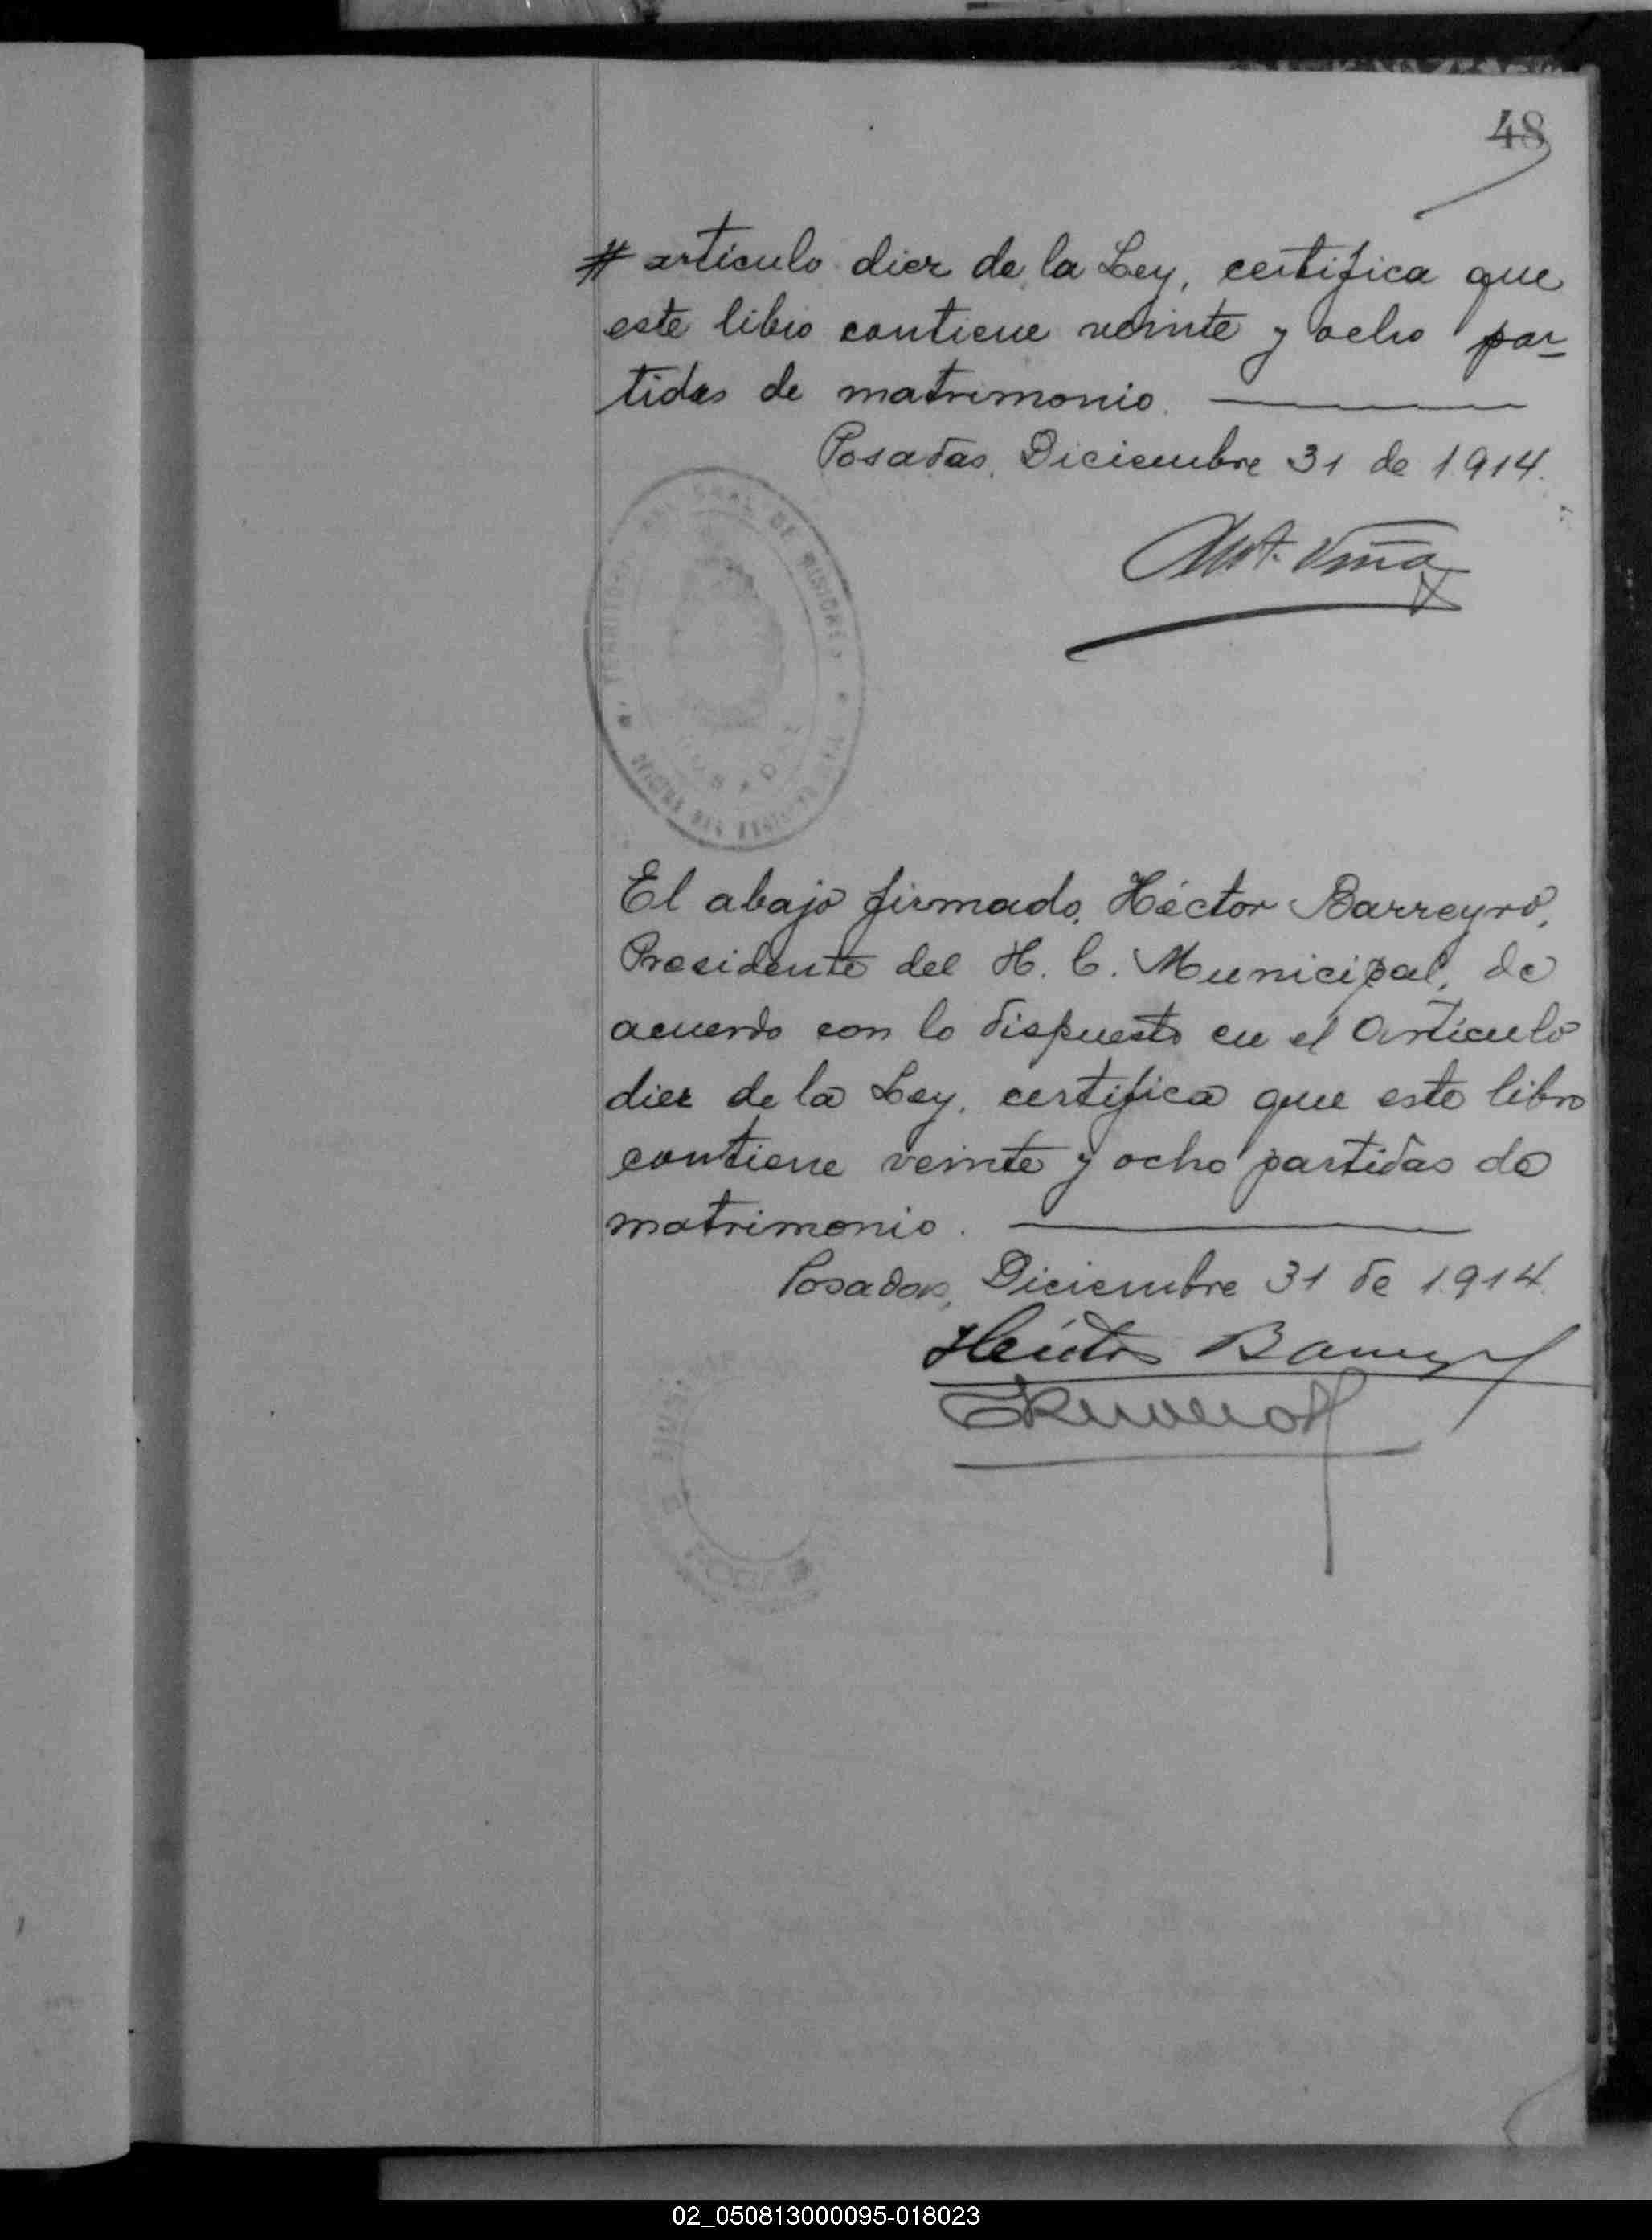 48
# artículo diez de la Ley, certifica que
este libro contiene veinte y ocho par-
tidas de matrimonio.
Posadas, Diciembre 31 de 1914.
Ant. Viña
DE MISIONES
El abajo firmado, Héctor Barreyro,
Presidente del H. C. Municipal, de
acuerdo con lo dispuesto en el artículo
diez de la Ley, certifica que este libro
contiene veinte y ocho partidas de
matrimonio.
Posadas, Diciembre 31 de 1914.
Héctor Barreyro
02_050813000095-018023